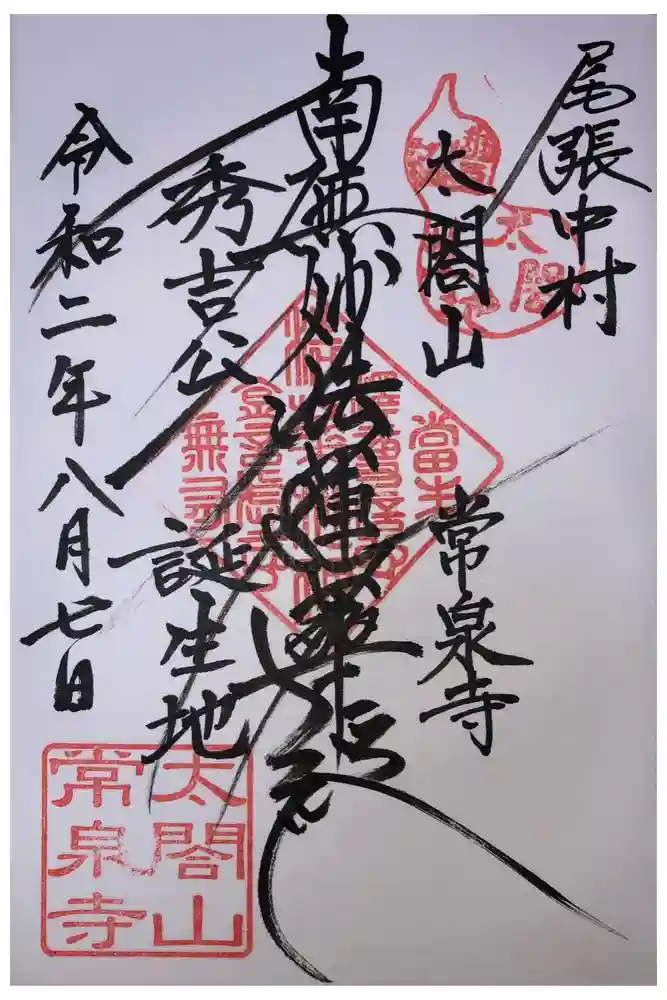 尾張中村
太閤山
常泉寺
南無妙法蓮華経
秀吉公
誕生地
令和二年八月七日
太閤
太閤山
常泉寺